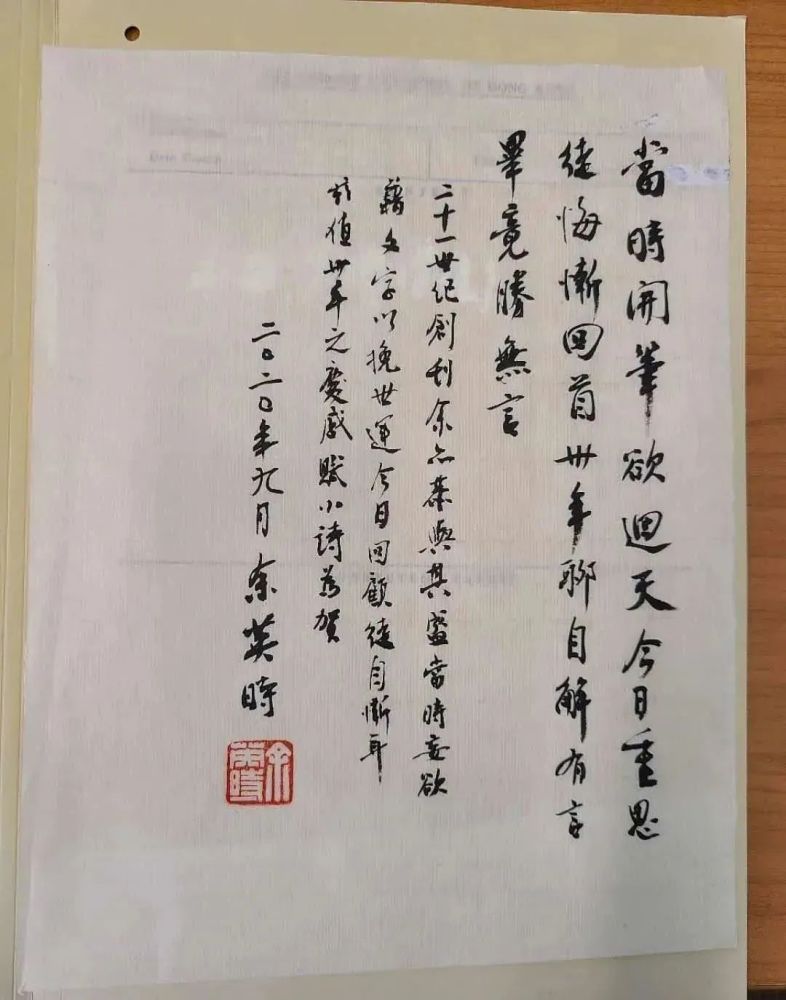 當時開筆欲迴天今日重思
徒悔慚回首卅年聊自解有言
畢竟勝無言
二十一世紀創刊余亦恭與其盛當時妄欲
藉文字以挽世運今日回顧徒自慚耳
茲值卅年之慶感賦小詩為賀
二〇二〇年九月 余英時
余英時